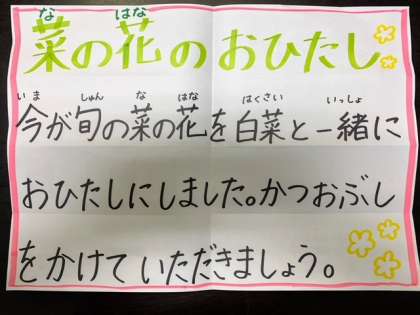 な はな
菜の花のおひたし
いま しゅん な はな はくさい いっしょ
今が旬の菜の花を白菜と一緒に
おひたしにしました。かつおぶし
をかけていただきましょう。